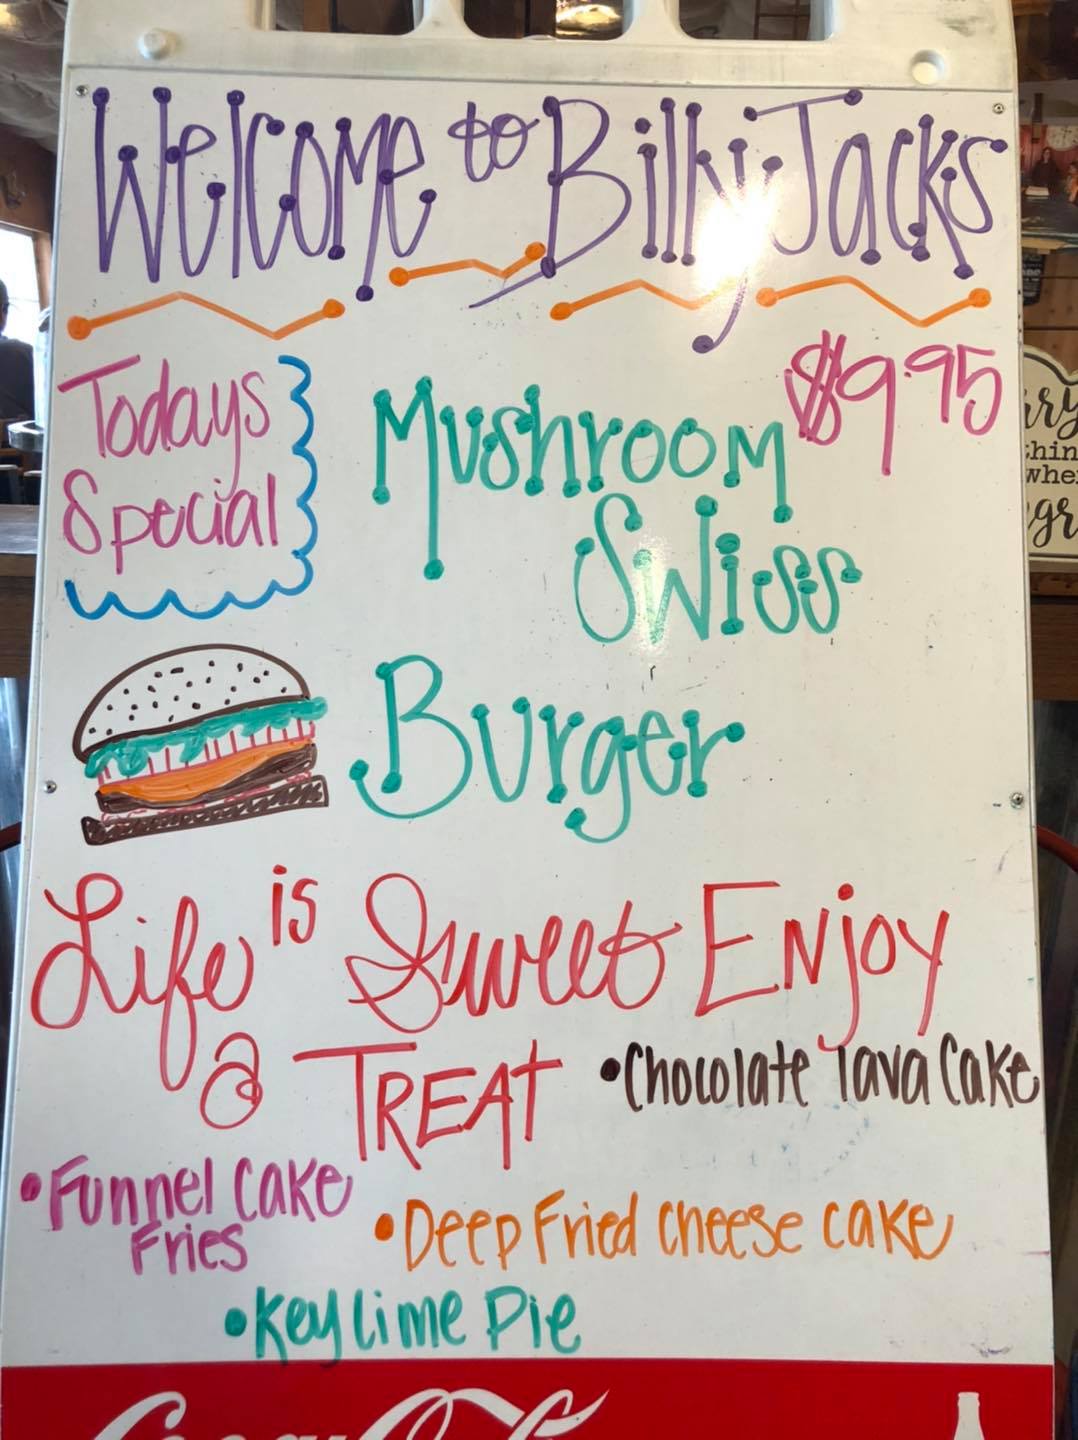 Welcome to Billy Jacks
Todays
Special
$9.95
Mushroom
Swiss
Burger
Life is Sweet Enjoy
a TREAT
•Chocolate lava Cake
•Funnel Cake
Fries
•Deep Fried cheese cake
•Key lime Pie
Coca-Cola